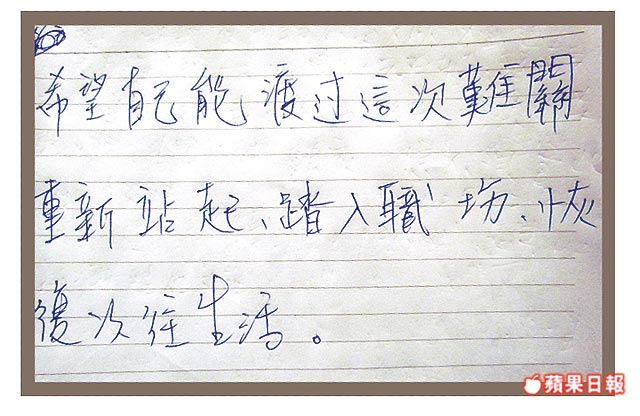 希望自己能渡过這次難關
重新站起、踏入職場、恢
復以往生活。
蘋果日報